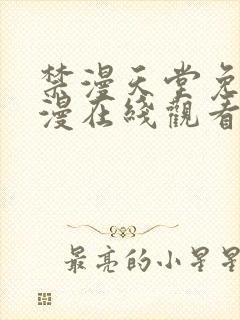 禁漫天堂免
漫在綫觀看
最亮的小星星